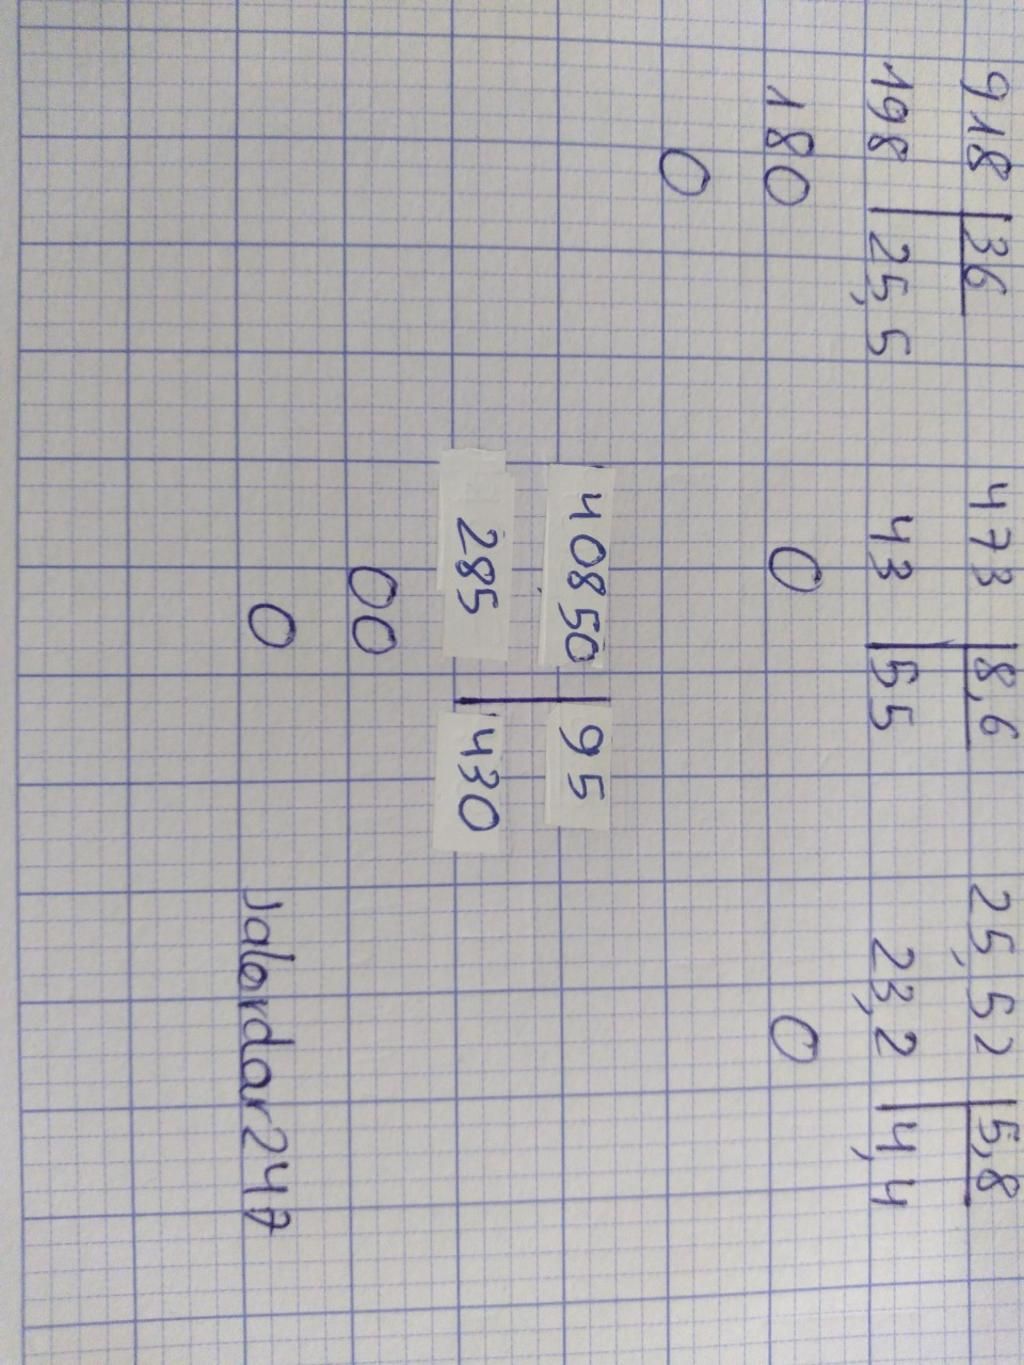 918 36
198 25,5
180
0
473 8,6
43 55
0
25,52 5,8
23,2 4,4
0
40850 95
285 430
00
0
Jalordar247